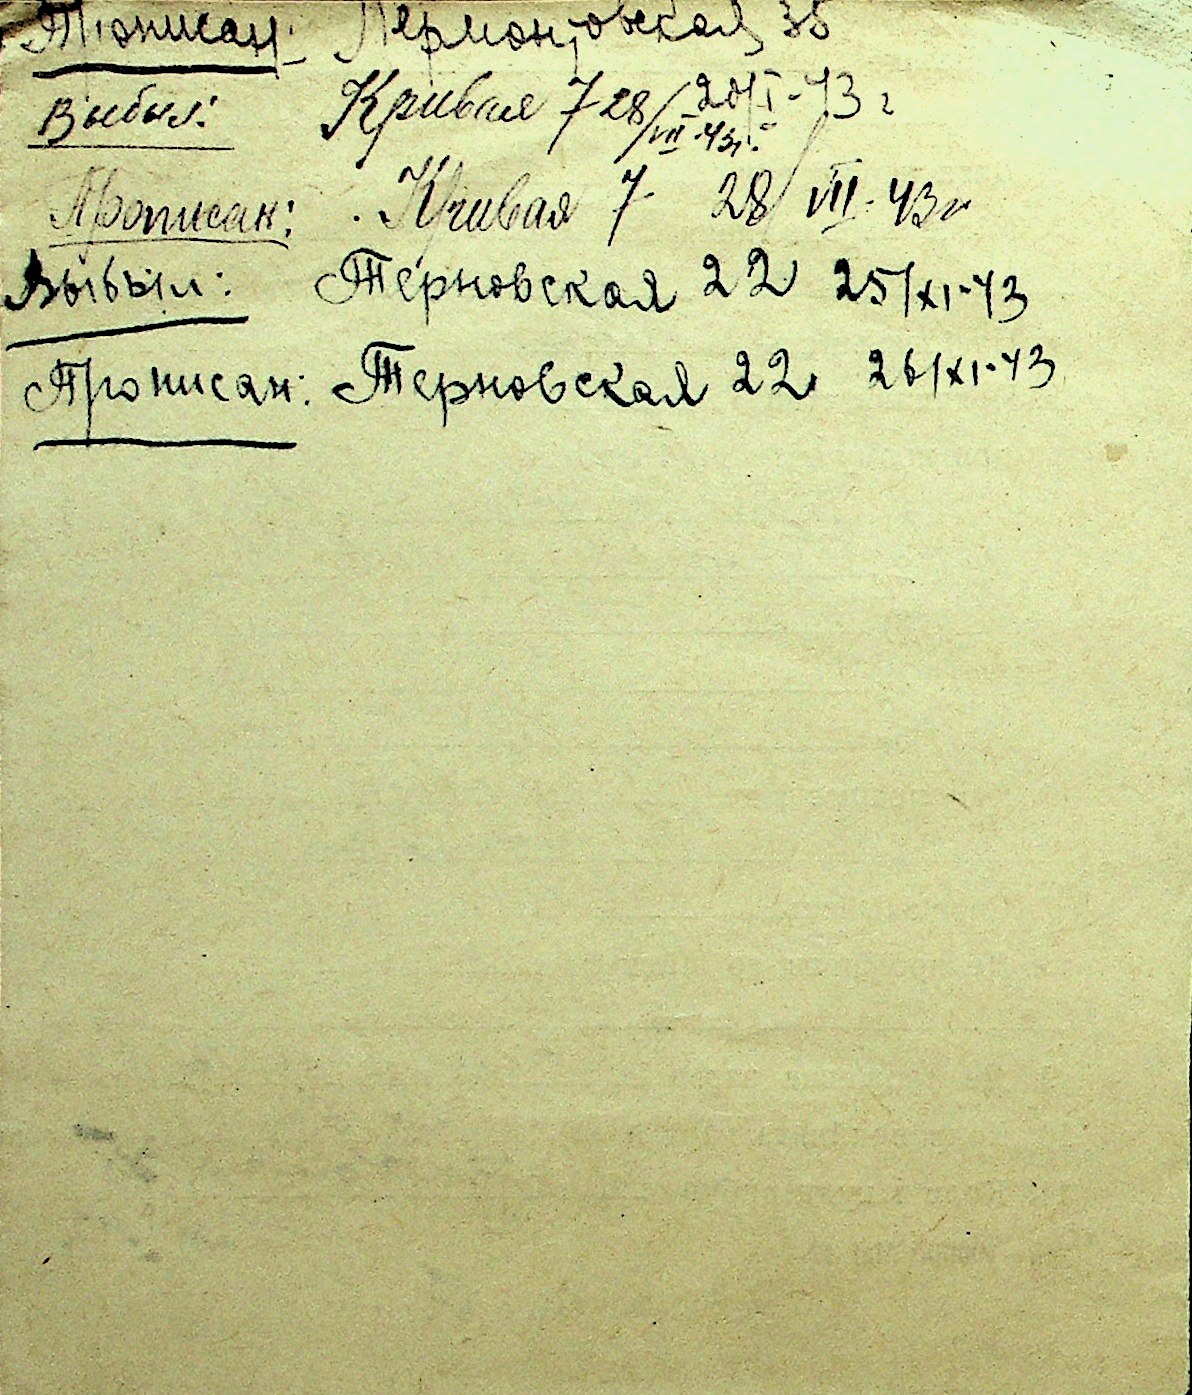 Прописан: Лермонтовская 35
Выбыл: Кривая 7 28/VIII-43г. 20/I-43 г
Прописан: Кривая 7 28/VIII-43г
Выбыл: Терновская 22 25/XI-43
Прописан: Терновская 22 26/XI-43